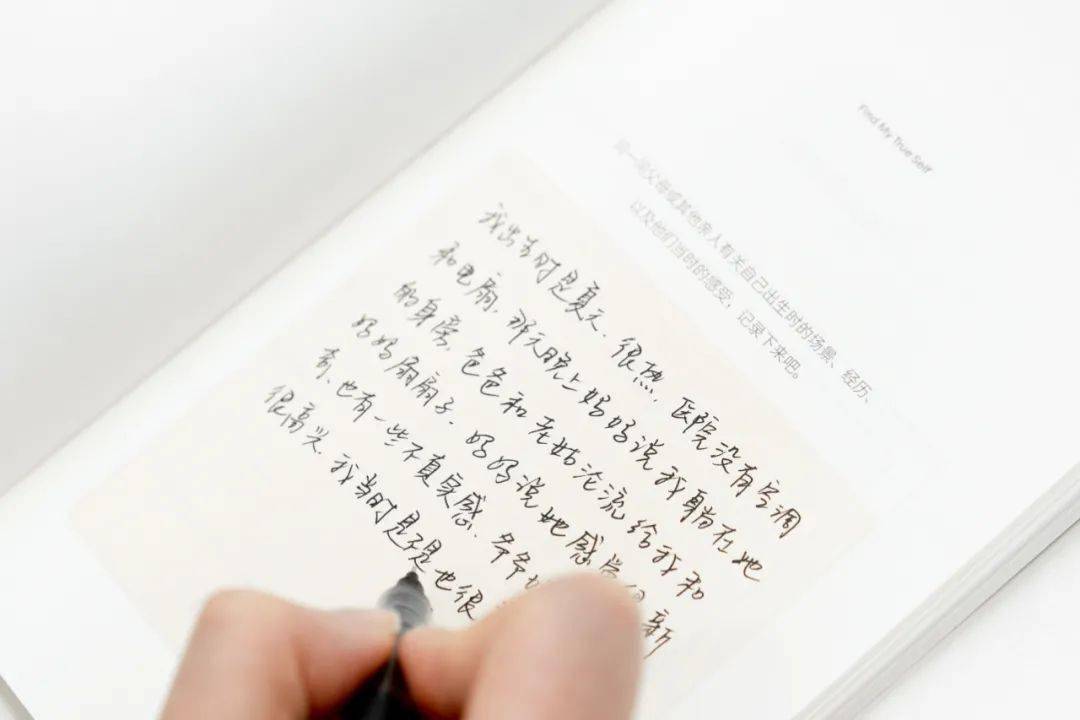 Find My True Self
问一问父母或其他亲人有关自己出生时的场景、经历，
以及他们当时的感受，记录下来吧。
我出生时是夏天．很热．医院没有空调
和电扇．那天晚上妈妈说我躺在她
的身旁．爸爸和大姑轮流给我和
妈妈扇扇子．妈妈说她感觉很新
奇．也有一些不真实感．爷爷
很高兴．我当时是不是也很